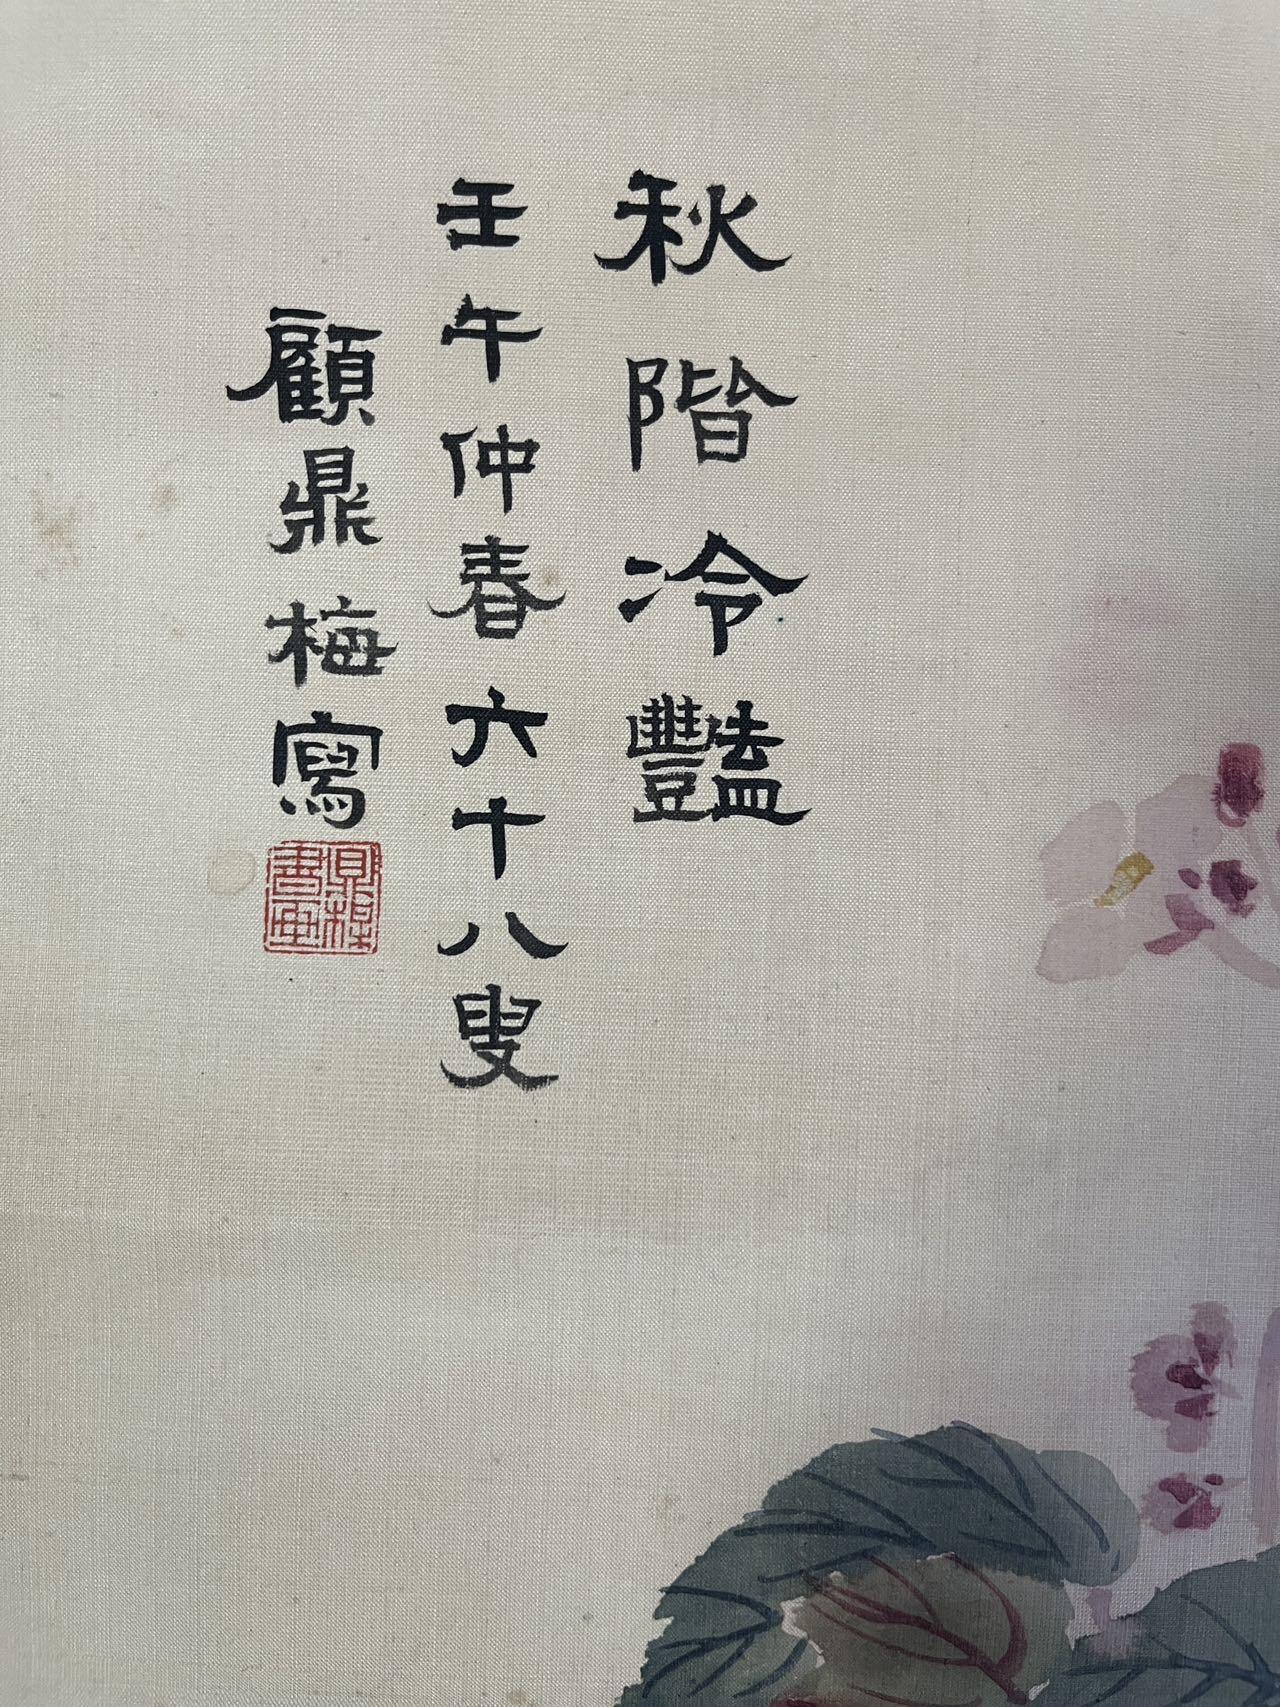 秋階冷豔
壬午仲春六十八叟
顧鼎梅寫
鼎梅
書画